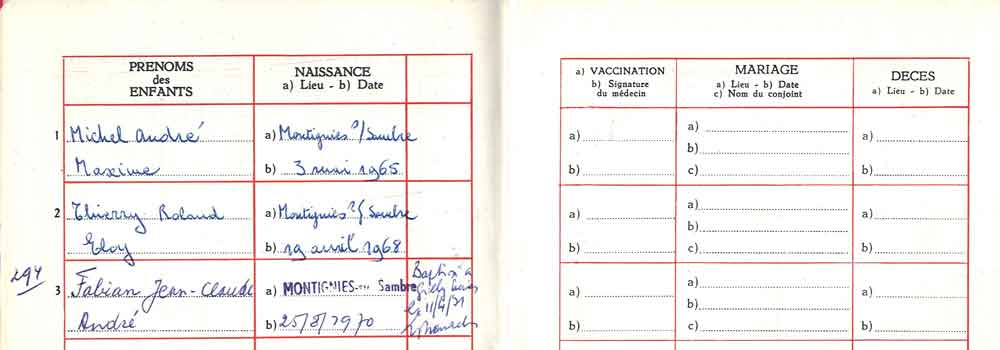 PRENOMS
des
ENFANTS
NAISSANCE
a) Lieu - b) Date
1 Michel André
Maxime
a) Montignies s/Sambre
b) 3 mai 1965
2 Thierry Roland
Eloy
a) Montignies s/ Sambre
b) 19 avril 1968
294
3 Fabian Jean-Claude
André
a) MONTIGNIES-sur Sambre
b) 25/8/1970
Baptisé à
Gilly
le 11/4/71
a) VACCINATION
b) Signature
du médecin
MARIAGE
a) Lieu - b) Date
c) Nom du conjoint
DECES
a) Lieu - b) Date
a)
b)
a)
b)
c)
a)
b)
a)
b)
a)
b)
c)
a)
b)
a)
b)
a)
b)
c)
a)
b)